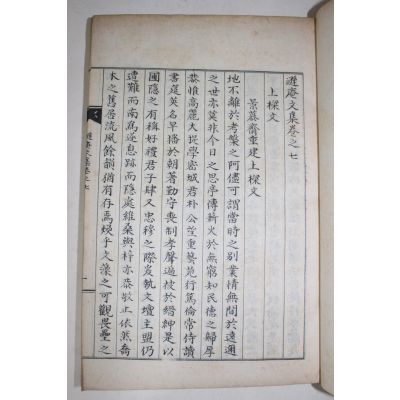 遯庵文集卷之七
上樑文
景慕齋重建上樑文
地不離於考槃之阿儘可謂當時之別業情無間於遠邇
之世亦莫非今日之思亭傳薪火於無窮知民德之歸厚
恭惟高麗大提學密城君朴公望重
行篤倫常侍讀
書筵英名早播於朝著勤守喪制孝聲遍
於縉紳是以
圃隱之有稱好禮君子肆又忠穆之際
執文壇主盟仍
遭難而南寓遂息跡而隱處維桑與梓亦恭敬止依然喬
木之舊居流風餘韻猶有存焉煥乎文藻之可觀畏壘之
遯庵文集卷之七
一